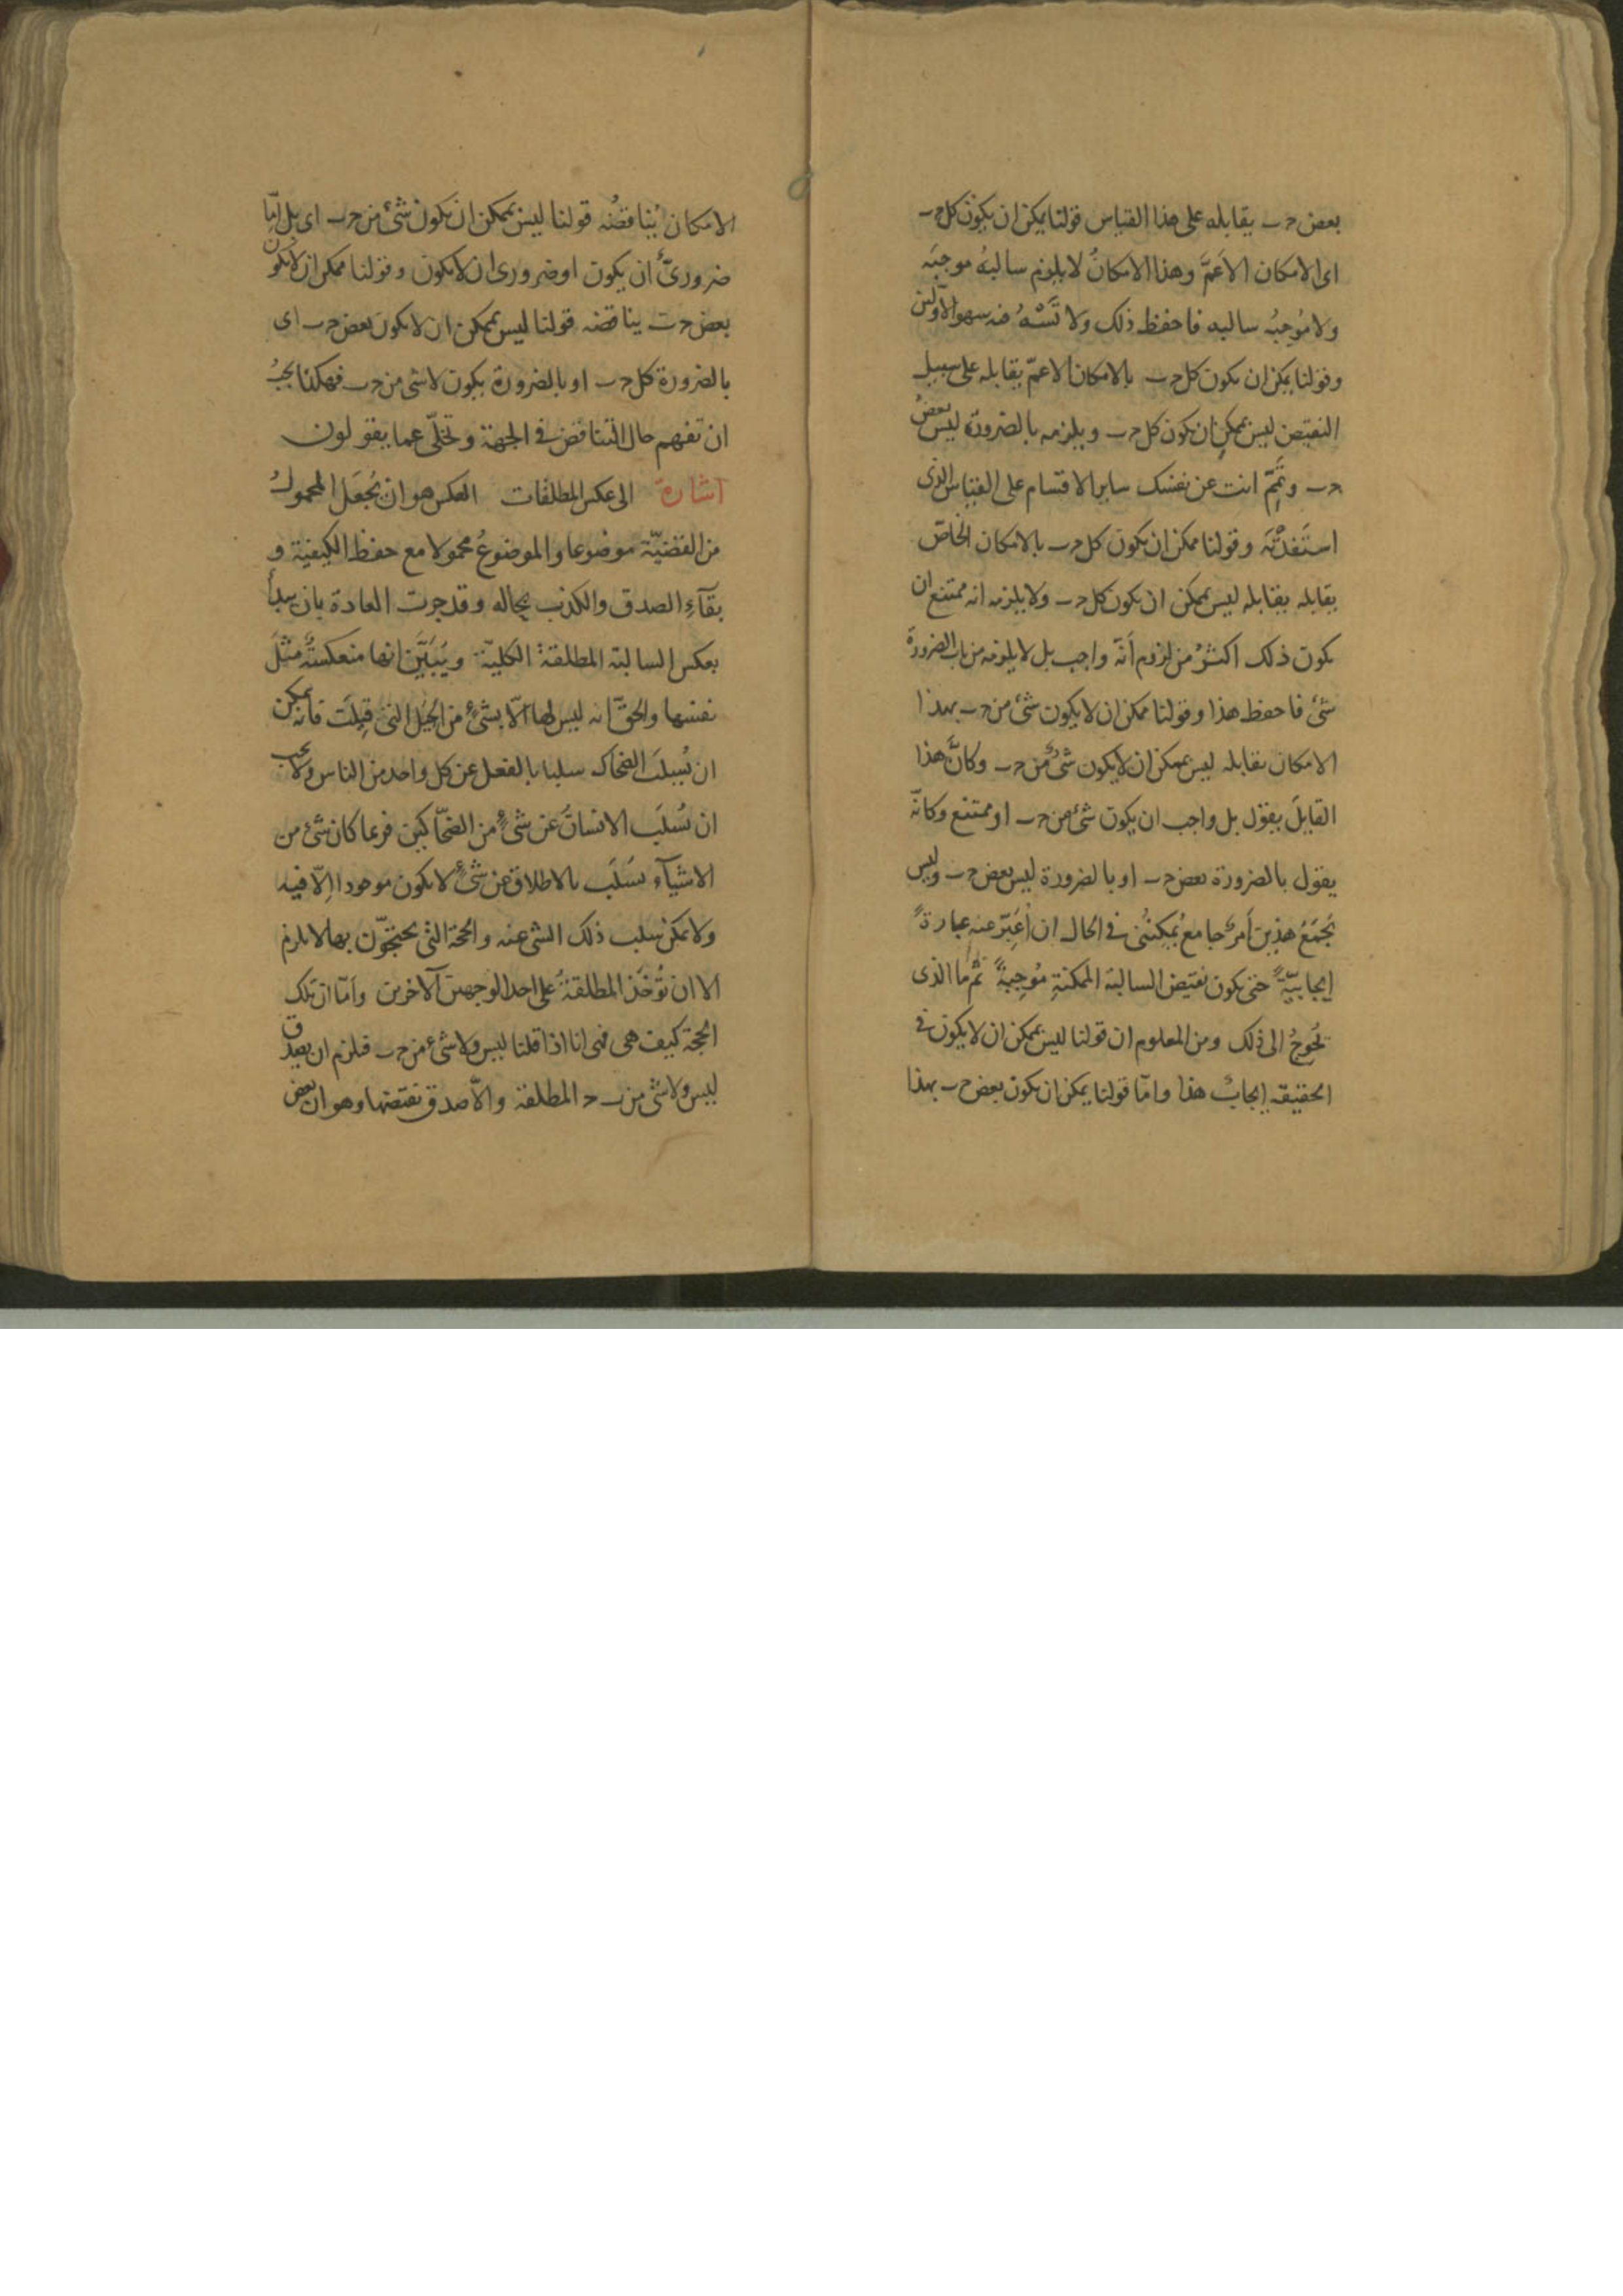 بعض ج ب يقابله على هذا القياس قولنا يمكن ان يكون كل ج ب
اى الامكان الاعمّ وهذا الامكانُ لا يلزم سالبهُ موجبَه
ولا مُوجبُه سالبه فاحفظ ذلك ولا تَسْهُ فيه سهو الاولين
وقولنا يمكن ان يكون كل ج ب بالامكان الاعمّ يقابله على سبيل
النقيض ليس بممكن ان يكون كل ج ب ويلزمه بالضرورة ليس بعضُ
ج ب وتَمِّم انت عن نفسك ساير الاقسام على القياس الذى
استَفدْتَه وقولنا ممكن ان يكون كل ج ب بالامكان الخاصّ
يقابله يقابله ليس بممكن ان يكون كل ج ب ولا يلزمه انه ممتنع ان
يكون ذلك اكثرُ من لزوم أنّه واجب بل لا يلزمه من باب الضرورة
شئ فاحفظ هذا وقولنا ممكن ان لا يكون شئ من ج ب بهذا
الامكان يقابله ليس بممكن ان لا يكون شئٌ من ج ب وكانَّ هذا
القايلَ يقول بل واجب ان يكون شئ من ج ب او ممتنع وكانّه
يقول بالضرورة بعض ج ب او بالضرورة ليس بعض ج ب وليس
يَجمَعُ هذين أمرٌ جامعٌ يُمكِنُنى فى الحال ان أُعَبِّرَ عنه عبارةً
إيجابيّةً حتى يكون نقيض السالبة الممكنةِ مُوجِبةً ثم ما الذى
يُحوِجُ الى ذلك ومن المعلوم ان قولنا ليس بممكن ان لا يكون فى
الحقيقه إيجابٌ هذا وامّا قولنا يمكن ان يكون بعض ج ب بهذا
الامكان يُناقضُه قولنا ليس بممكن ان يكون شئ من ج ب اى بل إمّا
ضرورىٌّ ان يكون او ضرورى ان لا يكون وقولنا ممكن ان لا يكون
بعض ج ب يناقضه قولنا ليس بممكن ان لا يكون بعض ج ب اى
بالضرورة كل ج ب او بالضرورة يكون لا شى من ج ب فهكذا يجبُ
ان تفهم حال التناقض فى الجهة وتخلّى عما يقولون
اشارة الى عكس المطلقات العكس هو ان يُجعَل المحمولُ
من القضيّة موضوعا والموضوعُ محمولا مع حفظ الكيفية و
بقآءِ الصدق والكذب بحاله وقد جرت العادة بان يبدأ
بعكس السالبة المطلقة الكلية ويُبَيَّنَ انها منعكسةٌ مثلَ
نفسها والحقّ انه ليس لها الّا بشئٍ من الحِيَل التى قِيلَت فانه يمكن
ان يُسلَبَ الضحّاك سلبا بالفعل عن كل واحد من الناس ولا يجب
ان يُسلَب الانسانُ عن شئٍ من الضحّاكين فربما كان شئ من
الاشيآء يُسلَب بالاطلاق عن شئٍ لا يكون موجودا إلّا فيه
ولا يمكن سلب ذلك الشى عنه والحجة التى يحتجّون بها لا يلزم
الا ان تُوخَذ المطلقةُ على احد الوجهين الآخرين وأمّا ان تلك
الحجة كيف هى فهى انا اذا قلنا ليس ولا شئ من ج ب فيلزم ان يصدق
ليس ولا شئ من ب ج المطلقة والّا صدق نقيضها وهو ان بعض